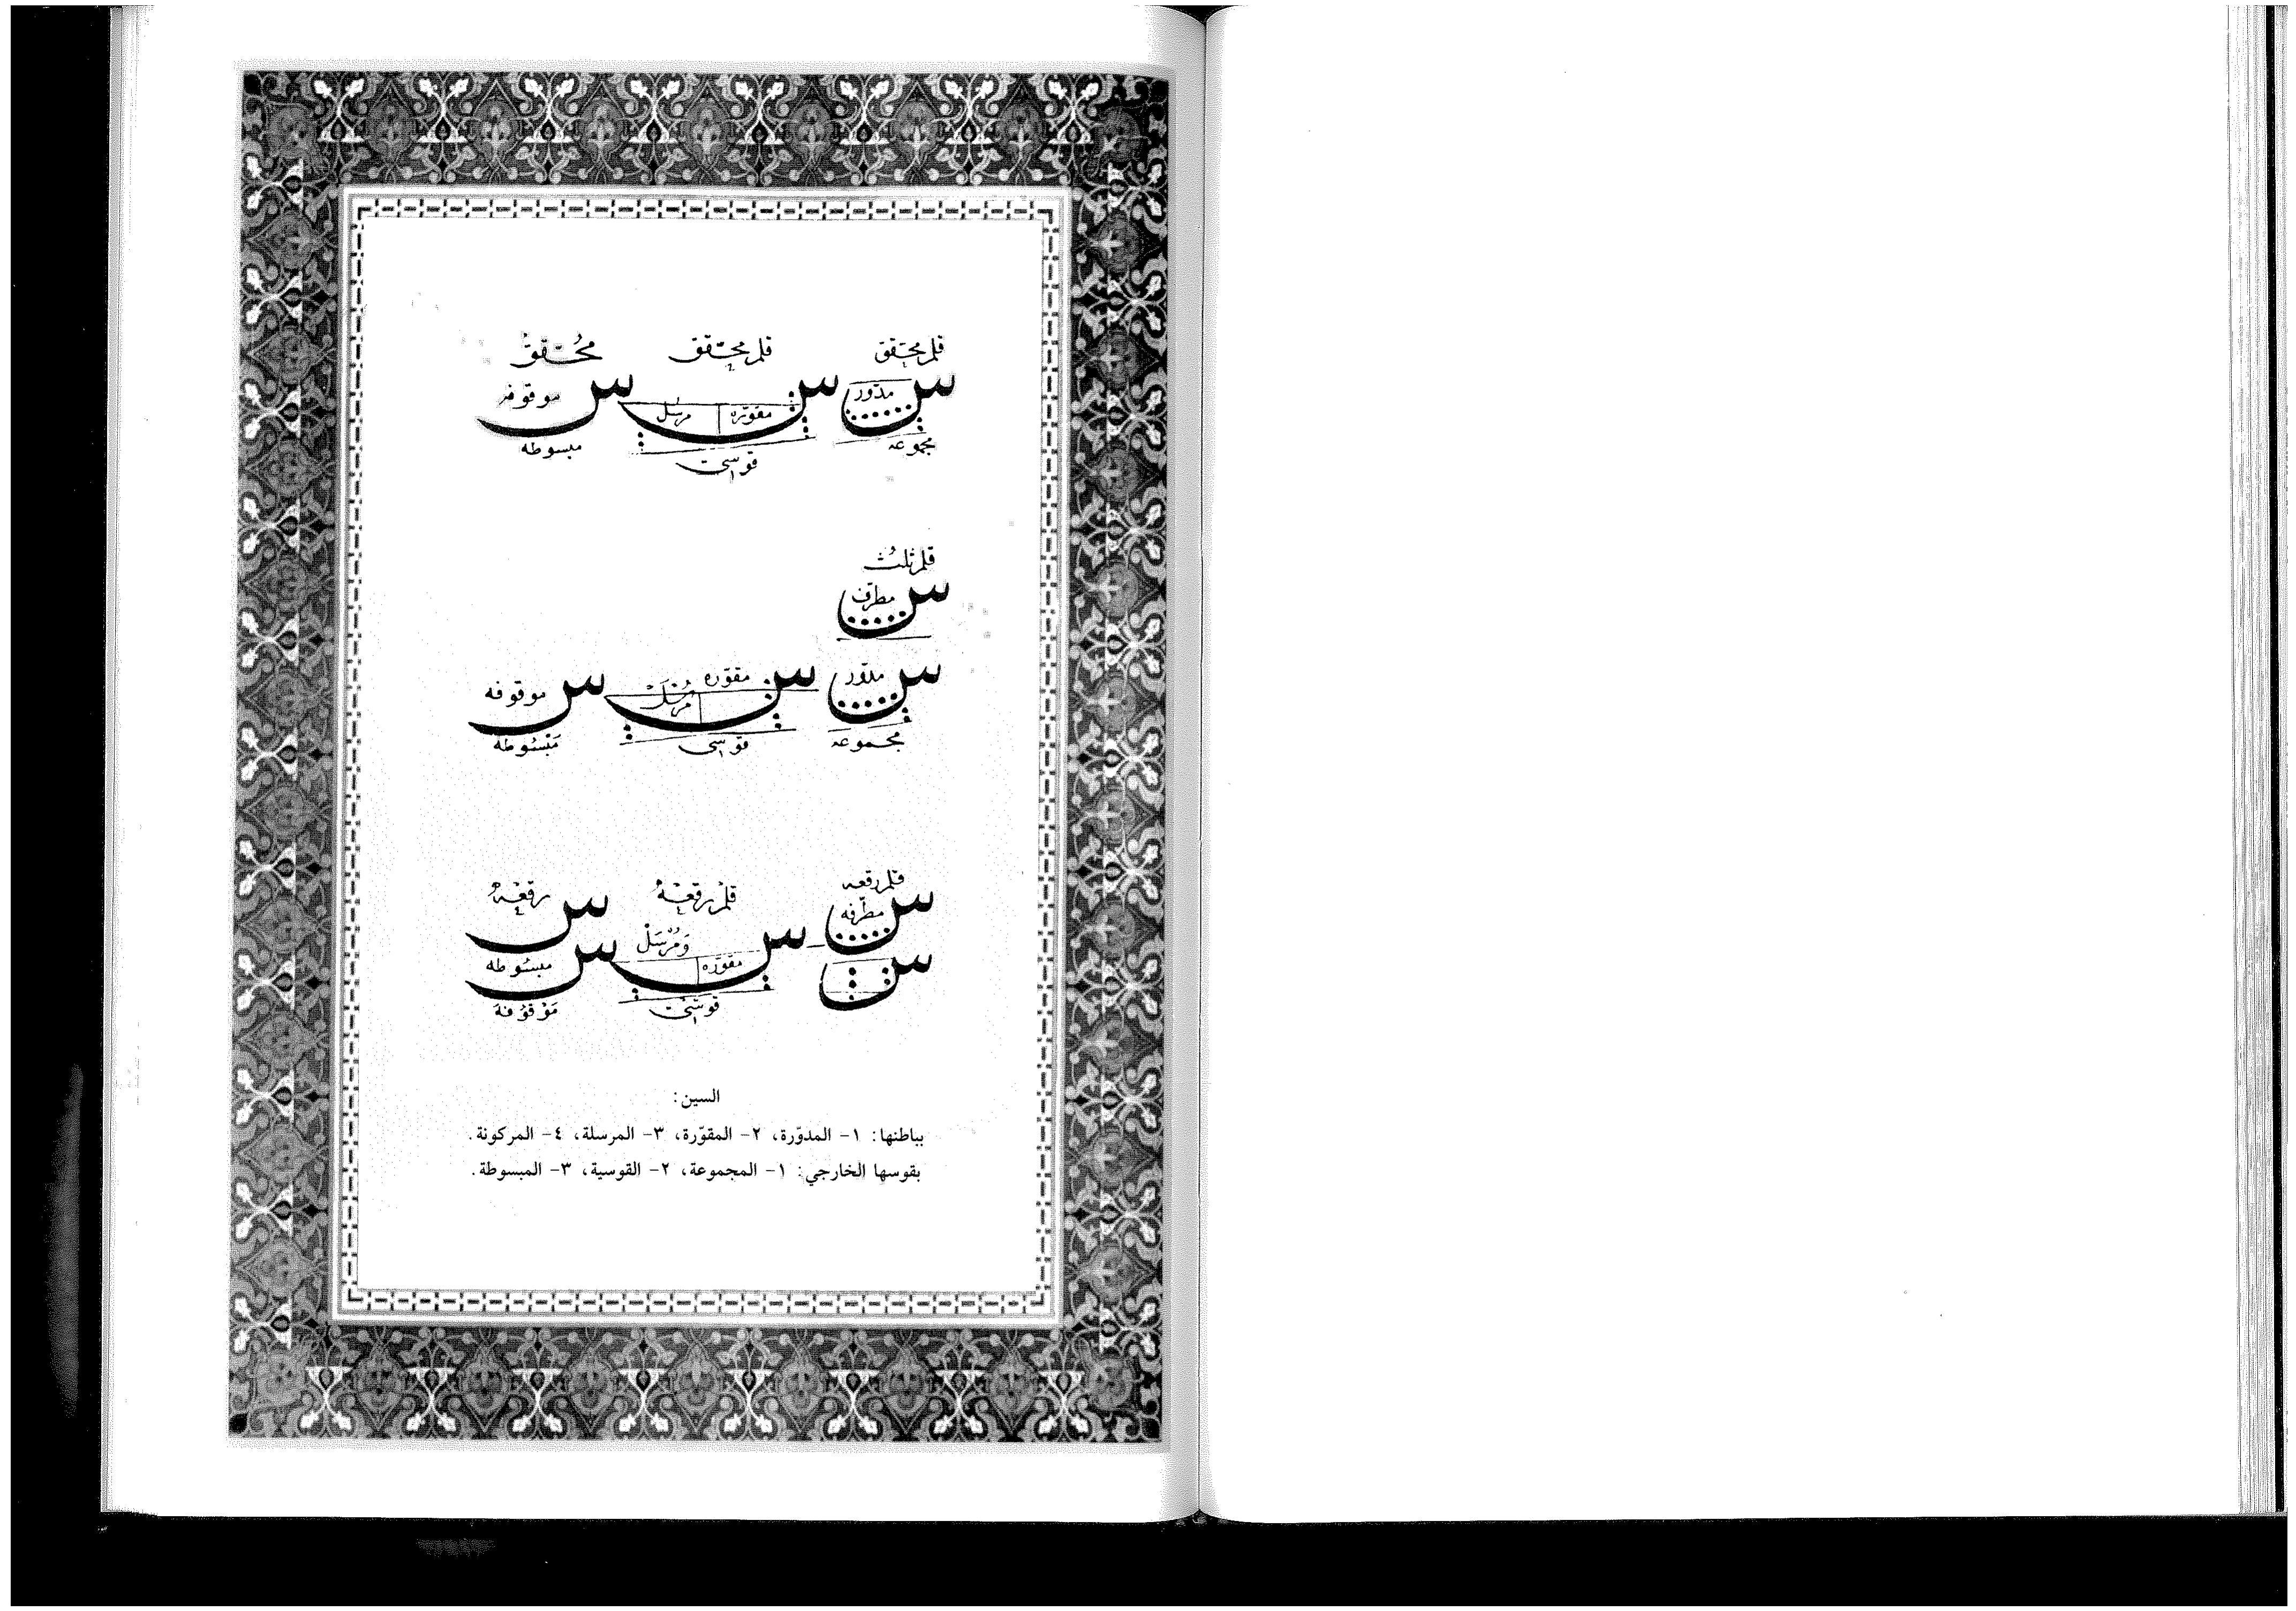 قلم محقق قلم محقق محقق
س س س
مدور مقوره مرسل موقوفه
مجموعه قوسى مبسوطه
قلم ثلث
س
مطرف
س س س
مدوّر مقوّره موقوفه
مجموعه قوسى مبسوطه
قلم رقعه قلم رقعه رقعه
س س
مطرفه ومرسل
س س س
مقوّره مبسوطه
موقوفة
السين:
بباطنها: ١- المدوّرة، ٢- المقوّرة، ٣- المرسلة، ٤- المركونة.
بقوسها الخارجي: ١- المجموعة، ٢- القوسية، ٣- المبسوطة.